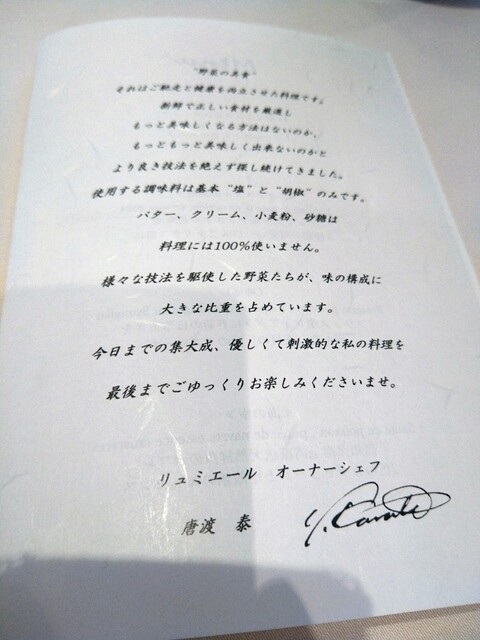 "野菜の美食"
それはご馳走と健康を両立させた料理です。
新鮮で正しい食材を厳選し
もっと美味しくなる方法はないのか、
もっともっと美味しく出来ないのかと
より良き技法を絶えず探し続けてきました。
使用する調味料は基本 "塩" と "胡椒" のみです。
バター、クリーム、小麦粉、砂糖は
料理には100%使いません。
様々な技法を駆使した野菜たちが、味の構成に
大きな比重を占めています。
今日までの集大成、優しくて刺激的な私の料理を
最後までごゆっくりお楽しみくださいませ。
リュミエール オーナーシェフ
唐渡 泰